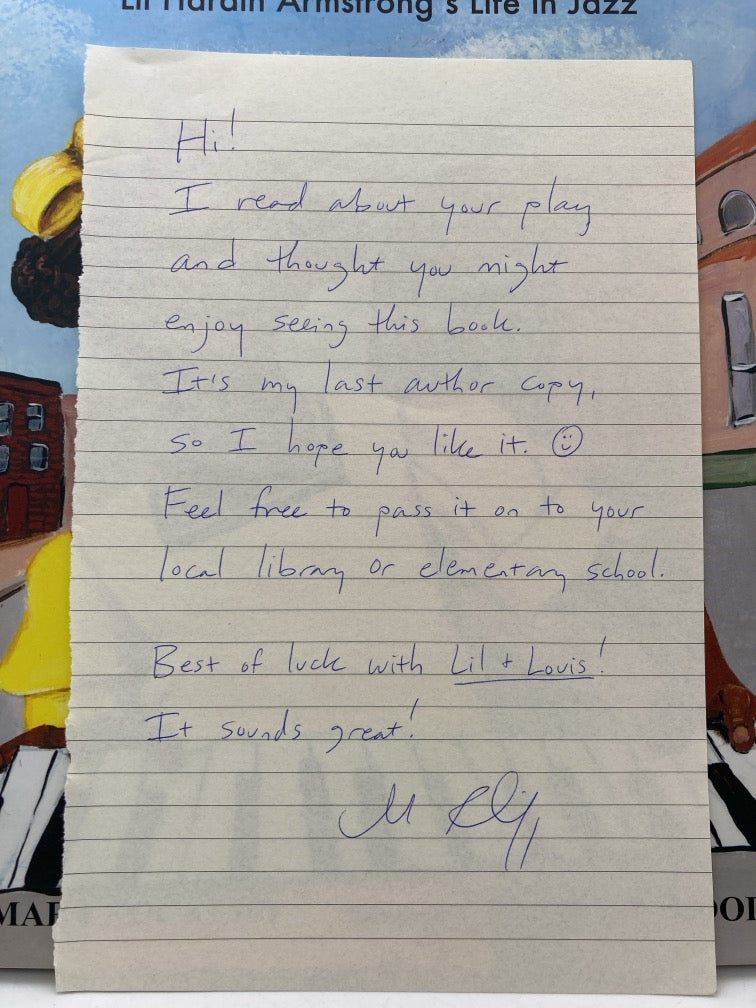 Lil Hardin Armstrong's Life in Jazz
Hi!
I read about your play
and thought you might
enjoy seeing this book.
It's my last author copy,
so I hope you like it. ☺
Feel free to pass it on to your
local library or elementary school.
Best of luck with Lil + Louis!
It sounds great!
M